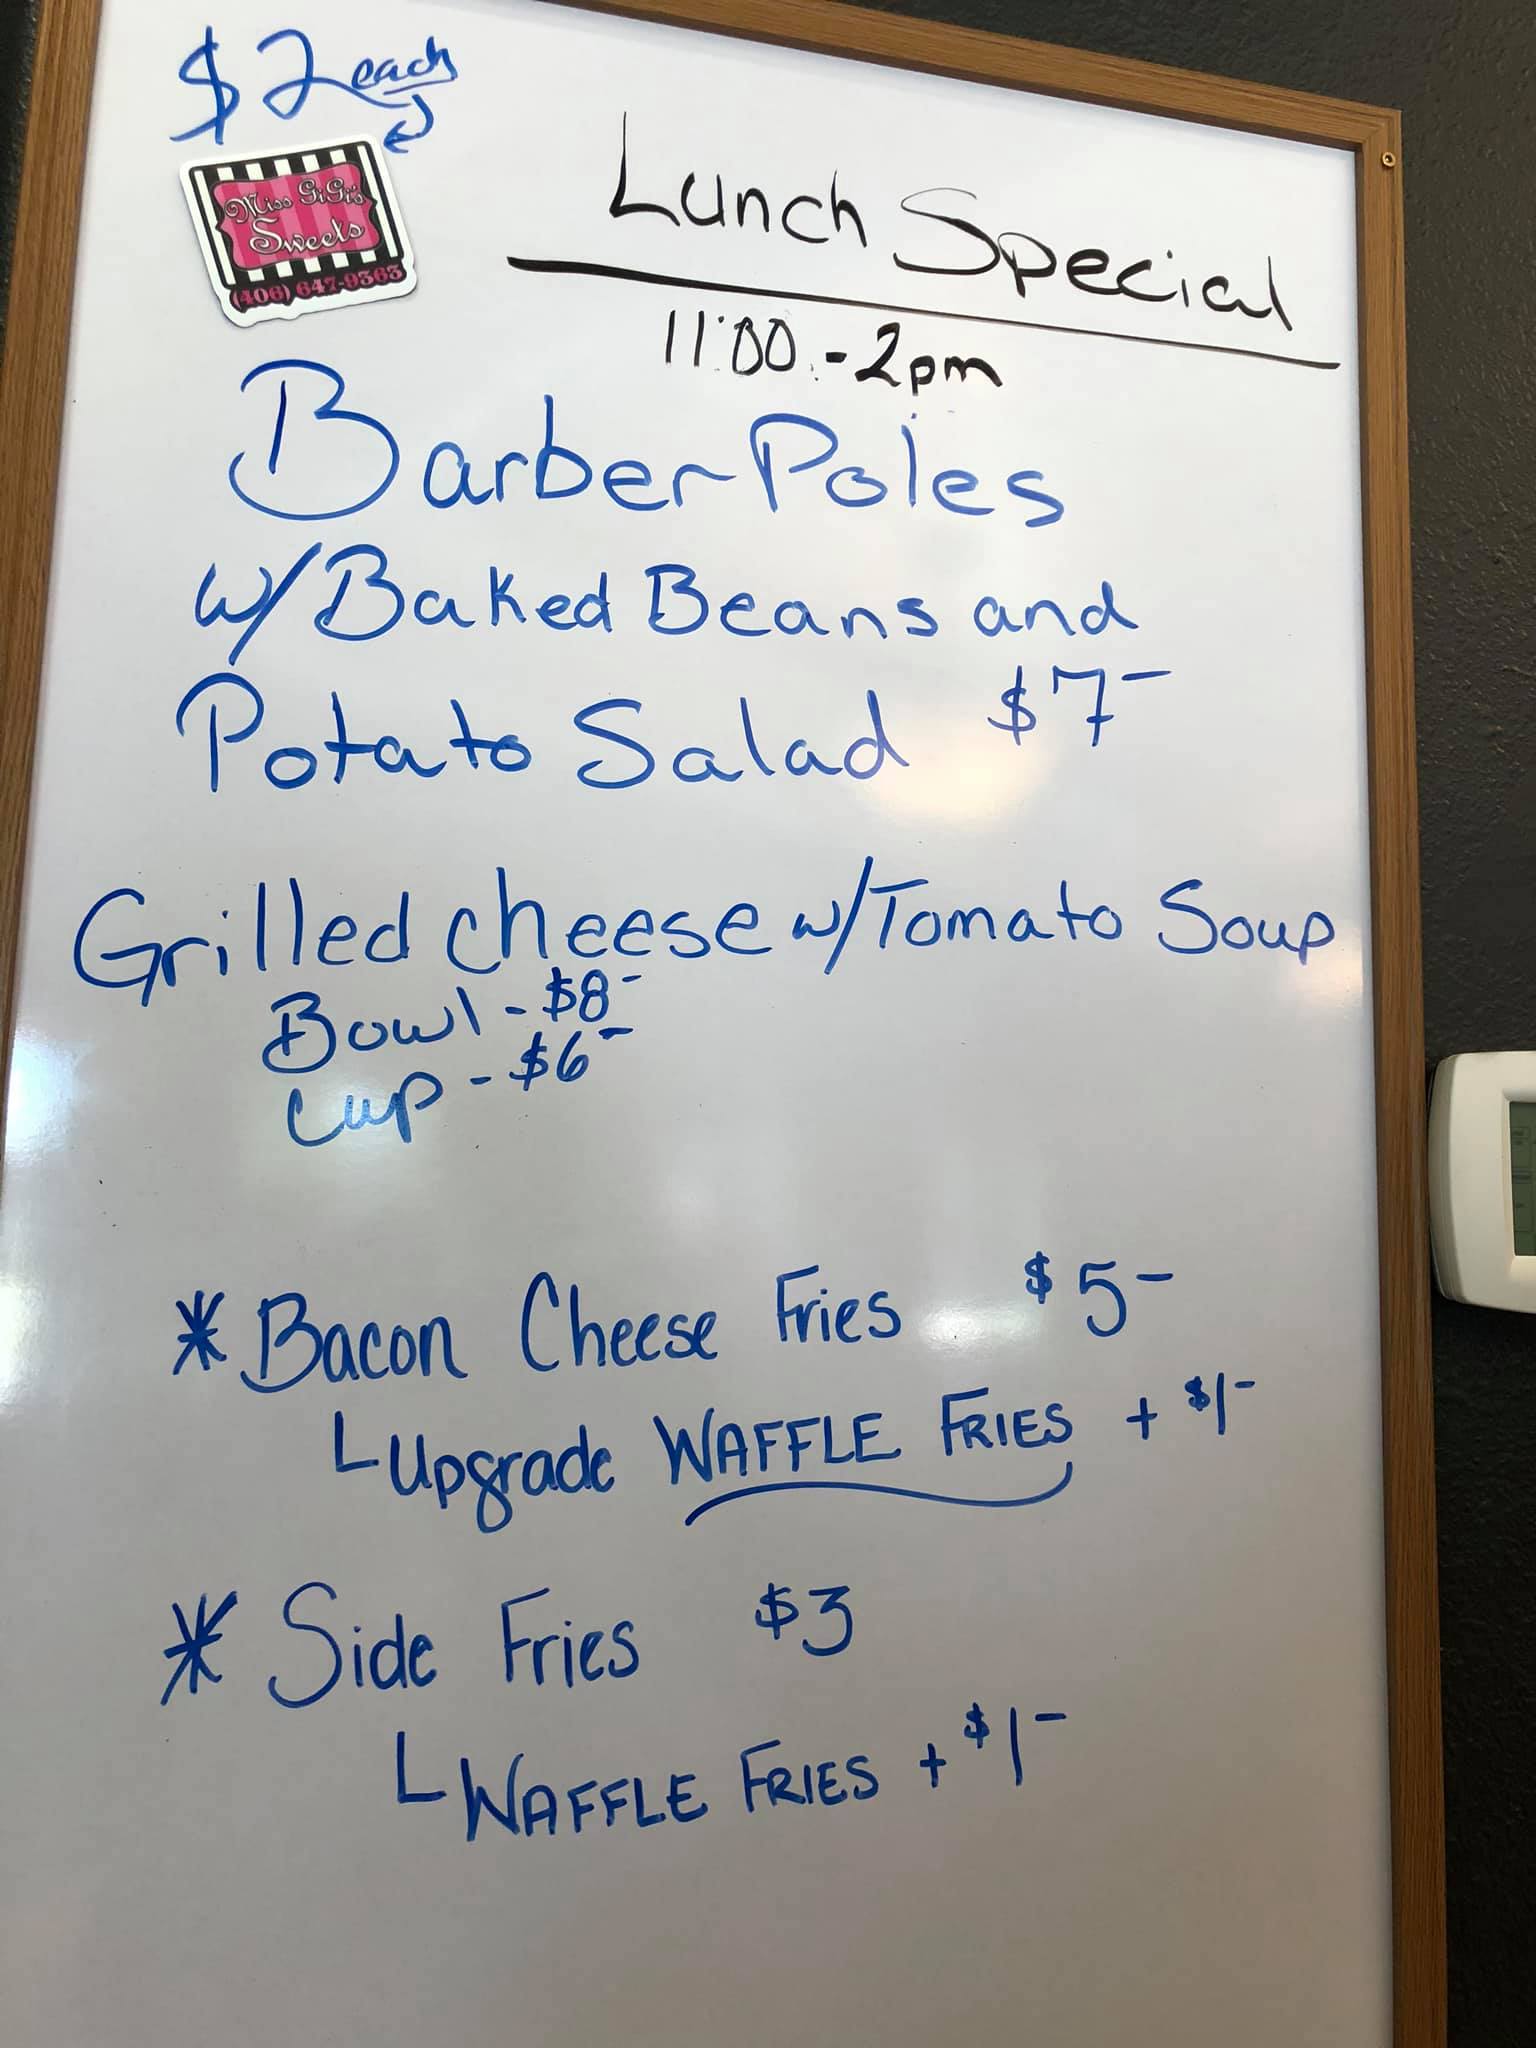 $2 each
Miss GiGi's
Sweets
(406) 647-9363
Lunch Special
11:00 - 2pm
Barber Poles
w/ Baked Beans and
Potato Salad $7-
Grilled cheese w/ Tomato Soup
Bowl - $8-
Cup - $6-
* Bacon Cheese Fries $5-
Upgrade WAFFLE FRIES + $1-
* Side Fries $3
WAFFLE FRIES + $1-